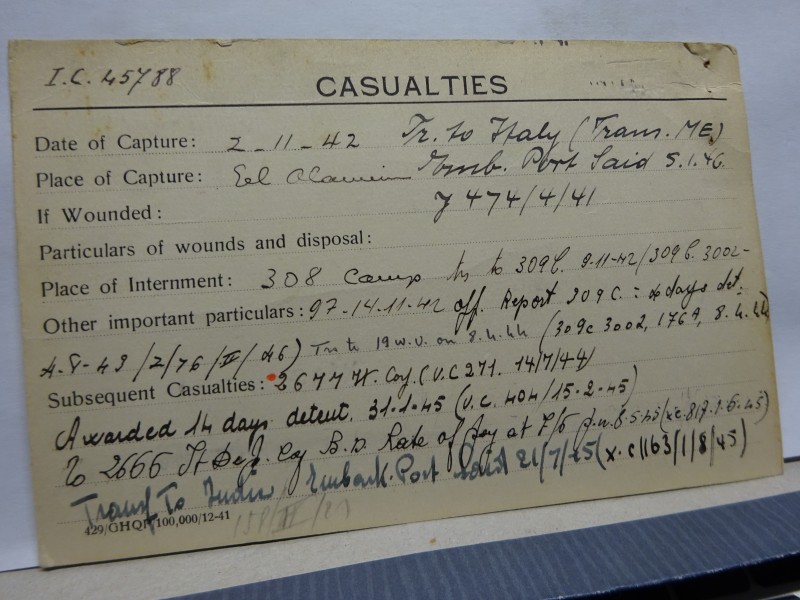 I.C. 45788
CASUALTIES
Date of Capture: 2-11-42 Tr. to Italy (Trans. ME)
Place of Capture: Eel Alamein Emb. Port Said 5.1.46.
If Wounded: 7474/4/41
Particulars of wounds and disposal:
Place of Internment: 308 Camp trs to 309C. 9-11-42/309C.3002-
Other important particulars: 97-14.11-42 off. Report 309C. = days det.
4-8-43/2/76/II/46) Trs to 19 w.u. on 8.4.44 (309c 3002, 176A, 8.4.44)
Subsequent Casualties: 2677 It. Coy. (U.C 271. 14/7/44)
Awarded 14 days detent. 31-1-45 (U.C. 404/15-2-45)
To 2666 It Coy B.D. Rate of Pay at 7/6
Transf To India Embark. Port Said 21/7/45 (x.c/163/1/8/45)
429/GHQP/100,000/12-41